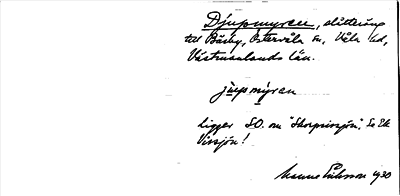 Djupmyren, slåtteräng
till Bärby, Östervåla sn, Våla hd,
Västmanlands län.
jùpmỳran
Ligger SO. om "Skarpirsjön", Se Ek
Virsjön!
Manne Eriksson 1930